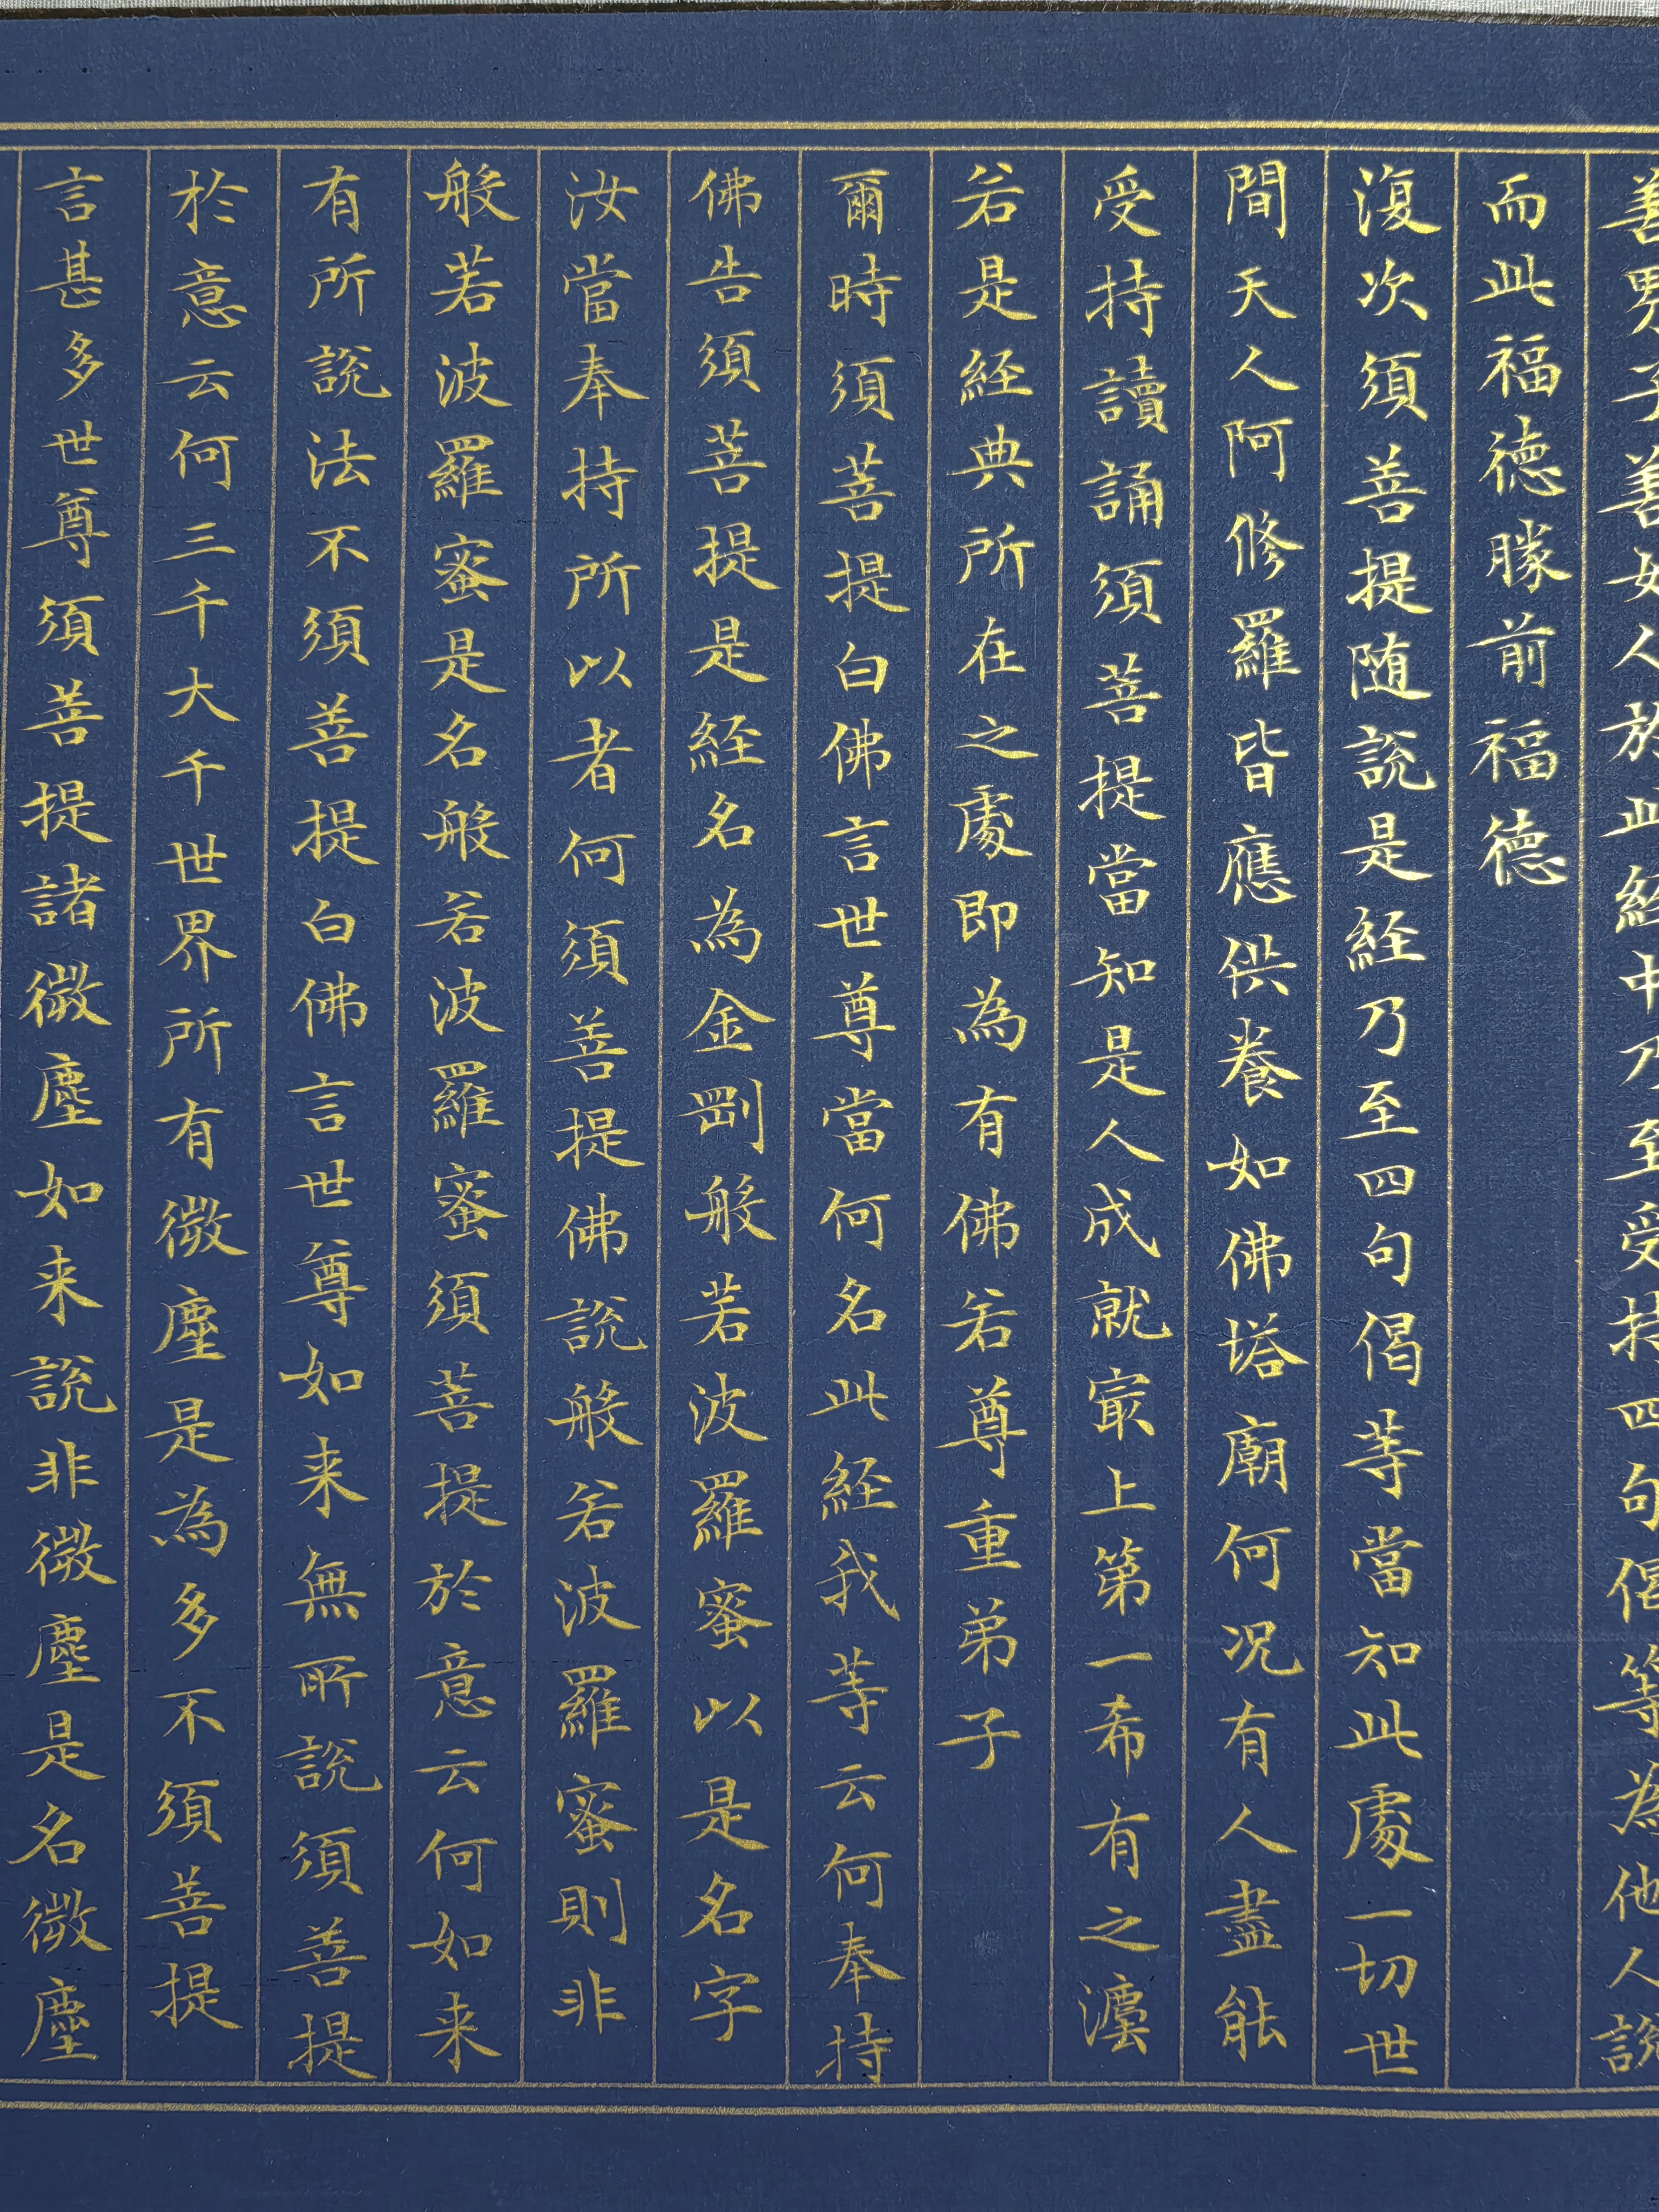 善男子善女人於此経中乃至受持四句偈等為他人說
而此福德勝前福德
復次須菩提随說是経乃至四句偈等當知此處一切世
間天人阿修羅皆應供養如佛塔廟何况有人盡能
受持讀誦須菩提當知是人成就冣上第一希有之灋
若是経典所在之處即為有佛若尊重弟子
爾時須菩提白佛言世尊當何名此経我等云何奉持
佛告須菩提是経名為金剛般若波羅蜜以是名字
汝當奉持所以者何須菩提佛說般若波羅蜜則非
般若波羅蜜是名般若波羅蜜須菩提於意云何如来
有所說法不須菩提白佛言世尊如来無所說須菩提
於意云何三千大千世界所有微塵是為多不須菩提
言甚多世尊須菩提諸微塵如来說非微塵是名微塵